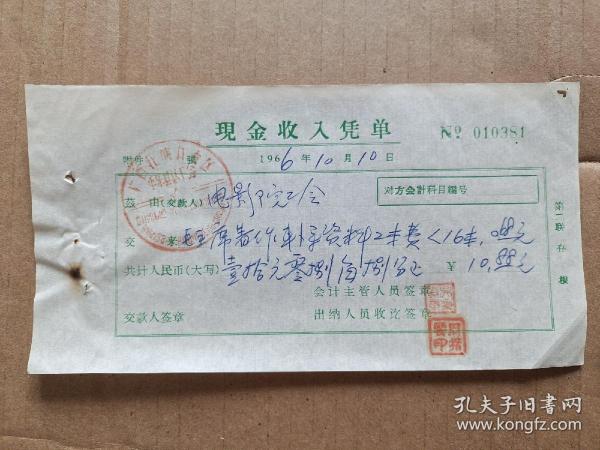 现金收入凭单
№ 010381
附件 號
1966年10月10日
兹由(交款人)电影院工会
对方会計科目編号
交来毛主席著作 资料工本費<16本,0.68元
共计人民币(大写)壹拾元零捌角捌分正 ￥10.88元
会计主管人员签章
交款人签章
出纳人员收讫签章
第一联存根
孔夫子旧书网
www.kongfz.com